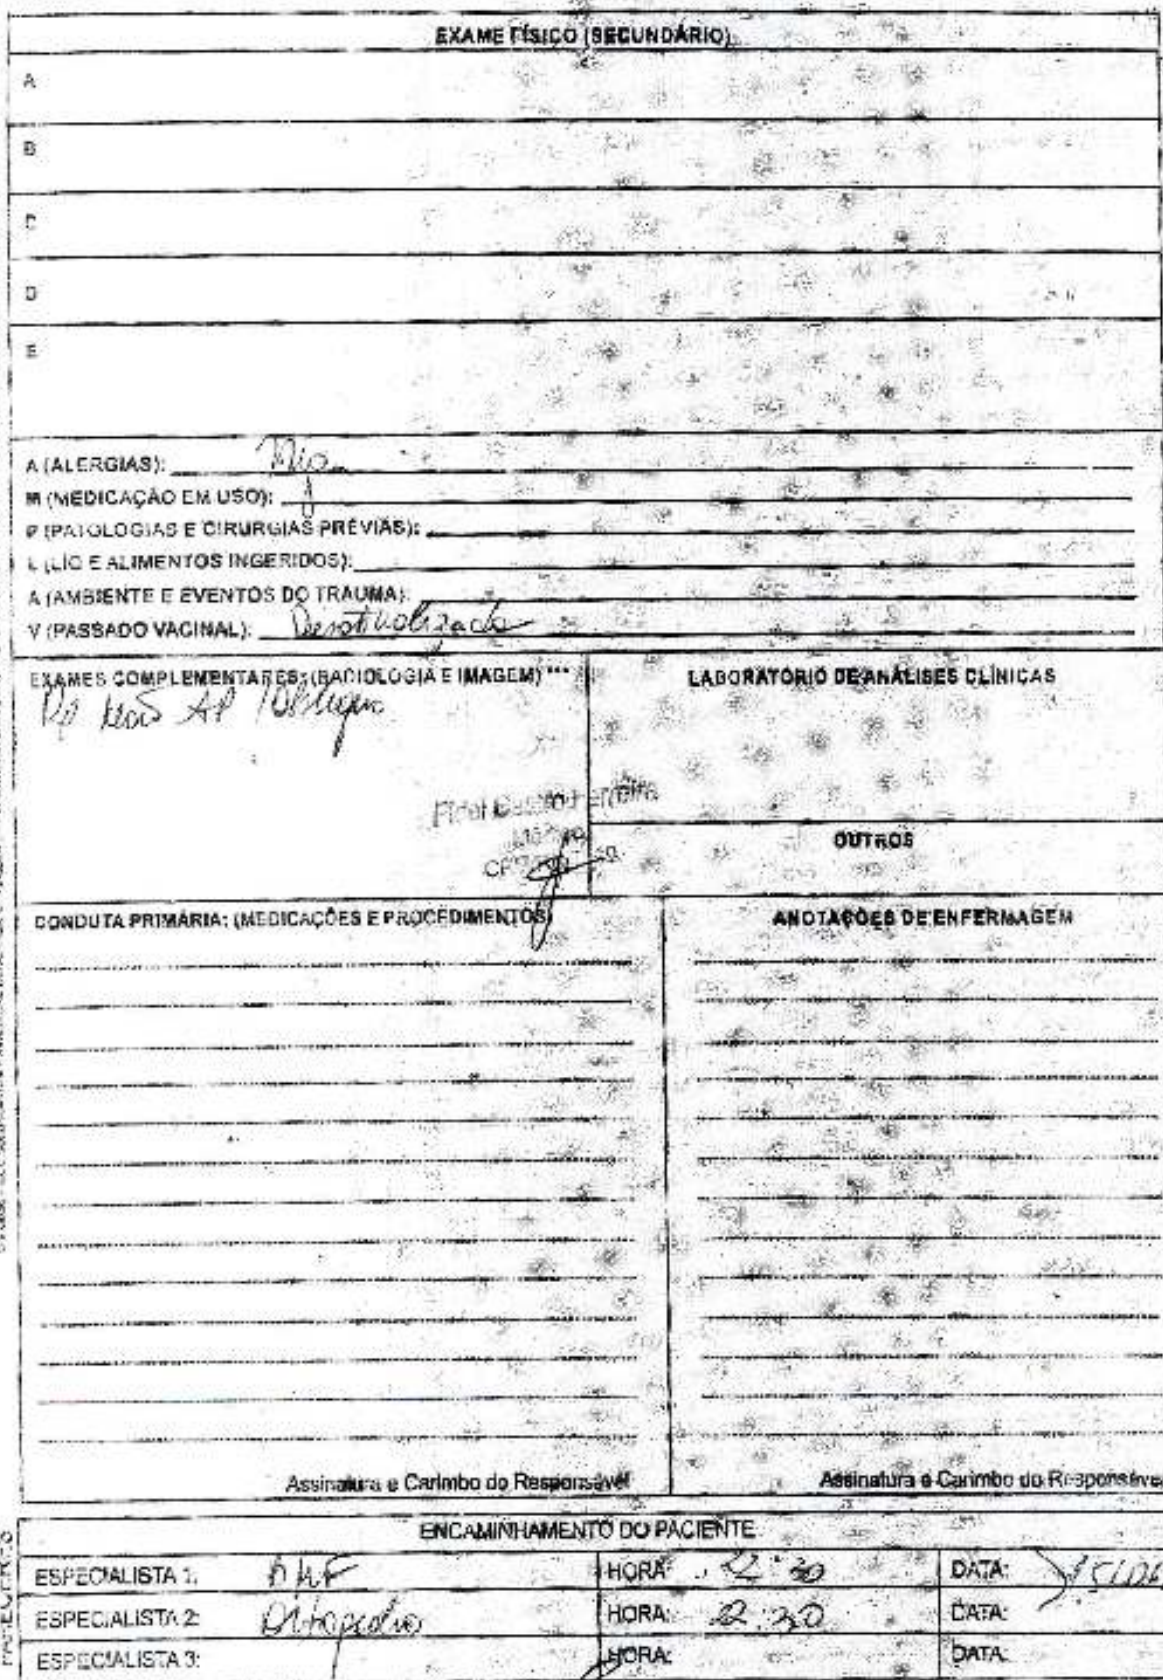 EXAME FÍSICO (SECUNDÁRIO)
A
B
C
D
E
A (ALERGIAS):
M (MEDICAÇÃO EM USO):
P (PATOLOGIAS E CIRURGIAS PRÉVIAS):
L (LIQ E ALIMENTOS INGERIDOS):
A (AMBIENTE E EVENTOS DO TRAUMA):
V (PASSADO VACINAL):
EXAMES COMPLEMENTARES: (RADIOLOGIA E IMAGEM) ***
AP
LABORATÓRIO DE ANÁLISES CLÍNICAS
OUTROS
CONDUTA PRIMÁRIA: (MEDICAÇÕES E PROCEDIMENTOS)
ANOTAÇÕES DE ENFERMAGEM
Assinatura e Carimbo do Responsável
Assinatura e Carimbo do Responsável
ENCAMINHAMENTO DO PACIENTE
ESPECIALISTA 1: HORA: 22:30 DATA:
ESPECIALISTA 2: Ortopedia HORA: DATA:
ESPECIALISTA 3: HORA: DATA: